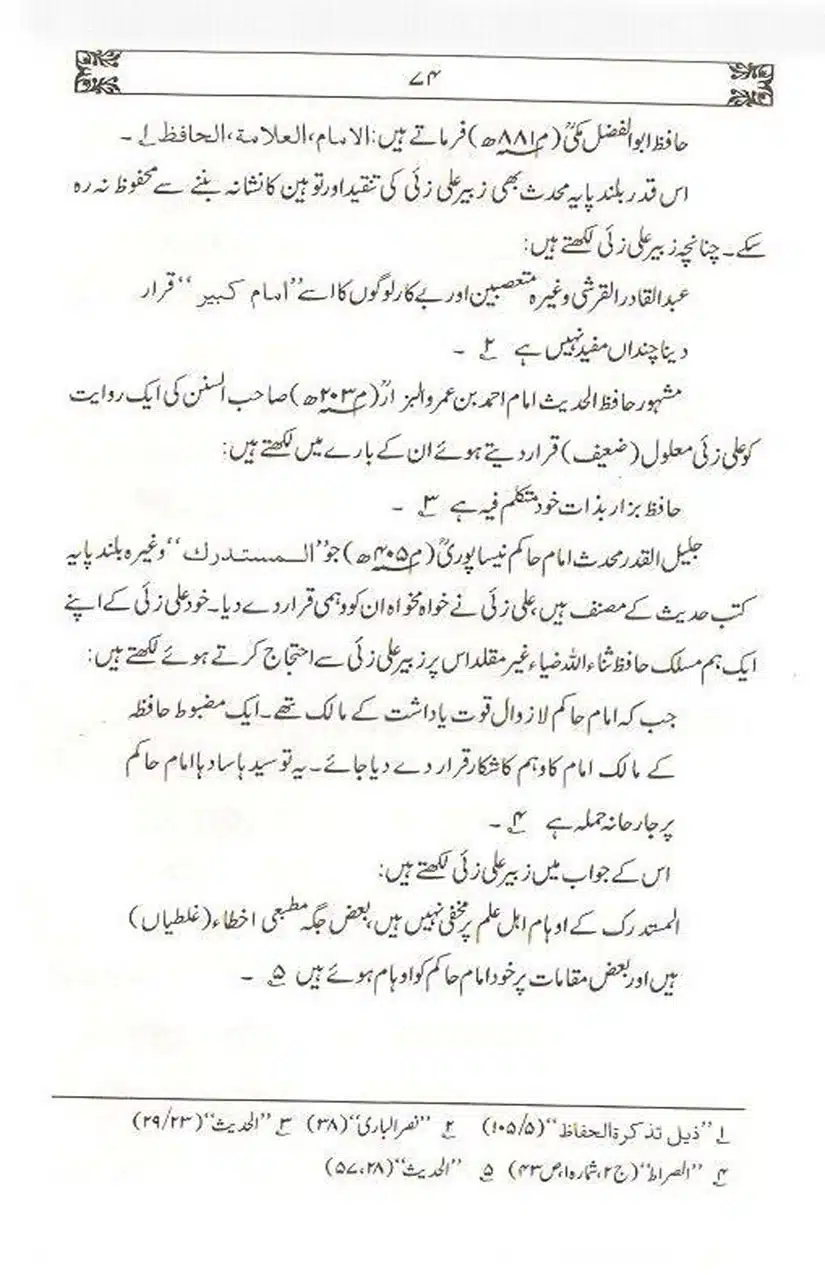 ۷۴
حافظ ابوالفضل مکیؒ (م ۸۸۱ھ) فرماتے ہیں: الامام، العلامة، الحافظ ۱؎ ۔
اس قدر بلند پایہ محدث بھی زبیر علی زئی کی تنقید اور توہین کا نشانہ بننے سے محفوظ نہ رہ
سکے۔ چنانچہ زبیر علی زئی لکھتے ہیں:
عبدالقادر القرشی وغیرہ متعصبین اور بے کار لوگوں کا اسے ”امام کبیر“ قرار
دینا چنداں مفید نہیں ہے ۲؎ ۔
مشہور حافظ الحدیث امام احمد بن عمرو البزارؒ (م ۲۰۳ھ) صاحب السنن کی ایک روایت
کو علی زئی معلول (ضعیف) قرار دیتے ہوئے ان کے بارے میں لکھتے ہیں:
حافظ بزار بذات خود متکلم فیہ ہے ۳؎ ۔
جلیل القدر محدث امام حاکم نیساپوریؒ (م ۴۰۵ھ) جو ”المستدرك“ وغیرہ بلند پایہ
کتب حدیث کے مصنف ہیں، علی زئی نے خواہ مخواہ ان کو وہمی قرار دے دیا۔ خود علی زئی کے اپنے
ایک ہم مسلک حافظ ثناء اللہ ضیاء غیر مقلد اس پر زبیر علی زئی سے احتجاج کرتے ہوئے لکھتے ہیں:
جب کہ امام حاکم لازوال قوت یاداشت کے مالک تھے۔ ایک مضبوط حافظہ
کے مالک امام کا وہم کا شکار قرار دے دیا جائے۔ یہ تو سیدہا سادہا امام حاکم
پر جارحانہ حملہ ہے ۴؎ ۔
اس کے جواب میں زبیر علی زئی لکھتے ہیں:
المستدرک کے اوہام اہل علم پر مخفی نہیں ہیں، بعض جگہ مطبعی اخطاء (غلطیاں)
ہیں اور بعض مقامات پر خود امام حاکم کو اوہام ہوئے ہیں ۵؎ ۔
۱؎ ”ذیل تذکرة الحفاظ“ (۱۰۵/۵) ۲؎ ”نصر الباری“ (۳۸) ۳؎ ”الحدیث“ (۲۹/۲۳)
۴؎ ”الصراط“ (ج ۲، شمارہ ۱، ص ۴۳) ۵؎ ”الحدیث“ (۵۷،۲۸)